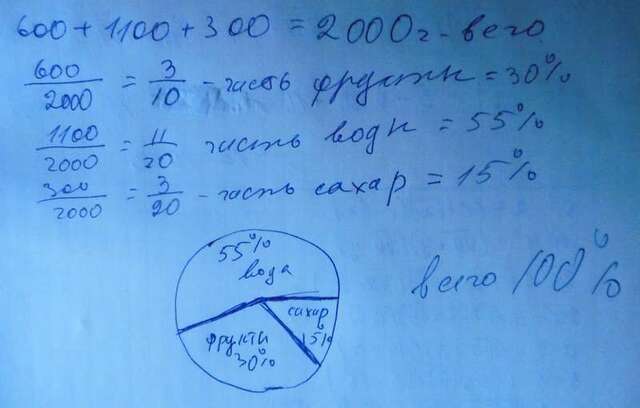 600 + 1100 + 300 = 2000г - всего
600/2000 = 3/10 - часть фрукты = 30%
1100/2000 = 11/20 часть воды = 55%
300/2000 = 3/20 - часть сахар = 15%
55%
вода
сахар
15%
фрукты
30%
всего 100%